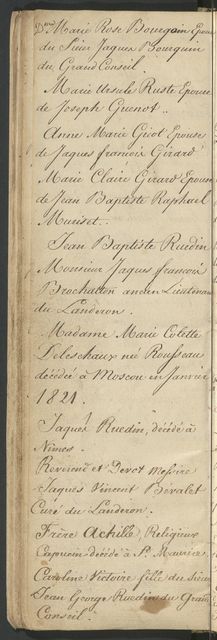 Dame Marie Rose Bourgoin Epouse
du Sieur Jaques Bourguin
du Grand Conseil.
Marie Ursule Ruste Epouse
de Joseph Guenot.
Anne Marie Girot Epouse
de Jaques françois Girard
Marie Claire Girard Epouse
de Jean Baptiste Raphael
Muriset.
Jean Baptiste Ruedin
Monsieur Jaques françois
Brochatton ancien Lieutenant
du Landeron.
Madame Marie Colette
Deleschaux née Rousseau
décédée à Moscou en Janvier
1821.
Jaques Ruedin, décédé à
Nimes.
Révérend et Devot Messire
Jaques Vincent Bévalet
Curé du Landeron.
Frère Achille, Religieux
Capucin décédé à St. Maurice.
Caroline Victoire fille du Sieur
Jean George Ruedin du Grand
Conseil.